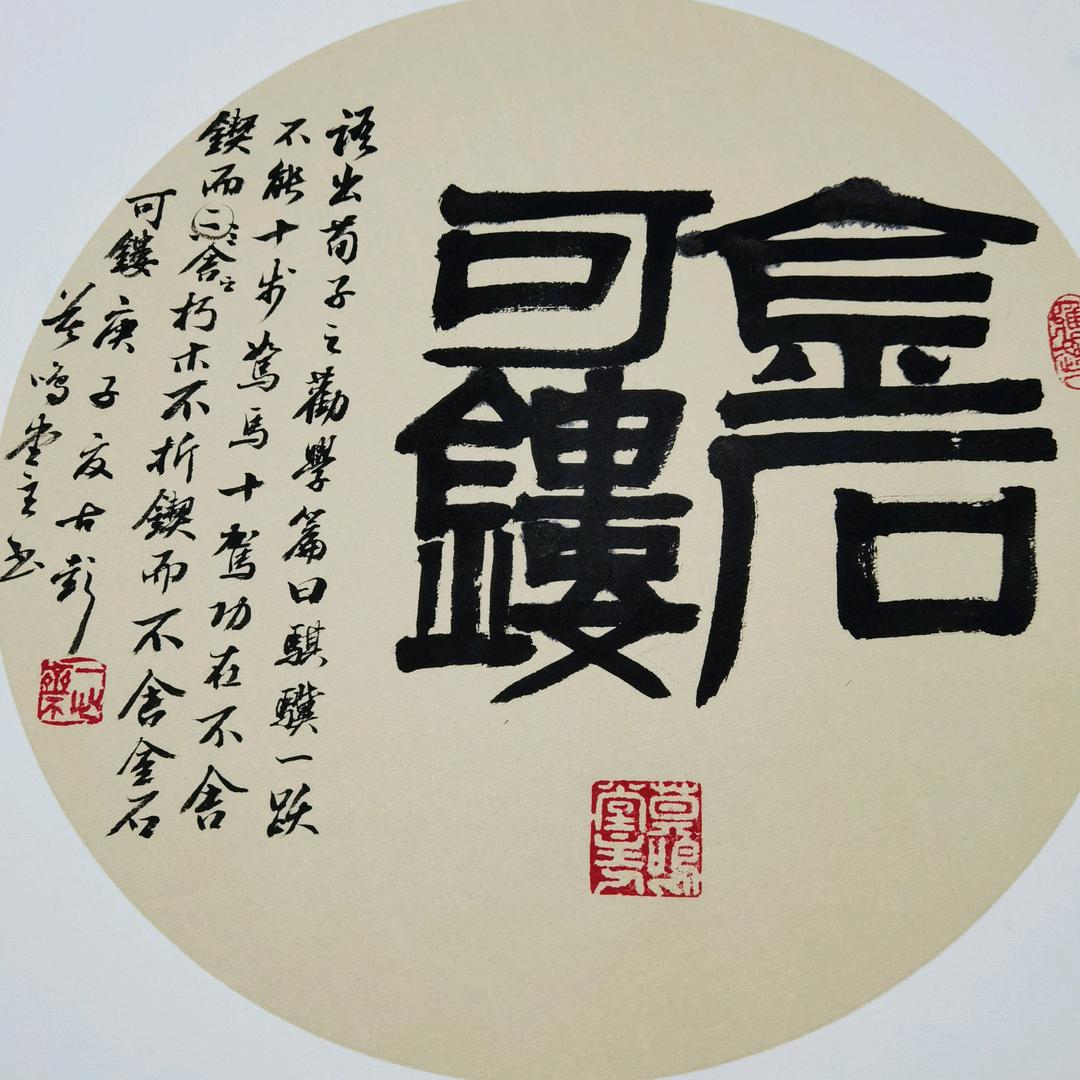 金石
可鏤
語出荀子之勸學篇曰騏驥一跃
不能十步駑馬十駕功在不舍
鍥而二舍朽木不折鍥而不舍金石
可鏤 庚子夏古彭
莫鳴堂主书
莫鳴
堂主